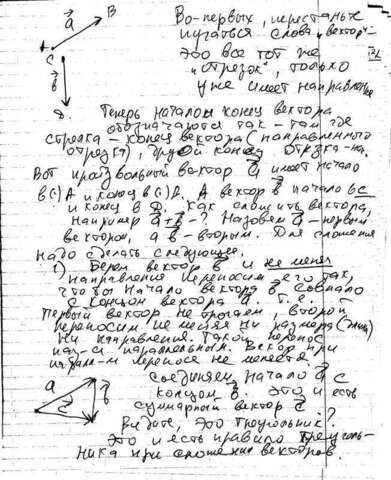 a B
Во-первых, перестаньте
пугаться слова "вектор"
A
C
это все тот же
"отрезок", только
b
уже имеет направление
D.
Теперь начало и конец вектора
обозначаются так - там где
стрелка - конец вектора (направленного
отрезка), другой конец отрезка - на.
Вот произвольный вектор a имеет начало
в (·) A и конец в (·) B. А вектор b начало в C
и конец в D. Как сложить вектора,
например a + b - ? Назовем a - первым
вектором, а b - вторым. Для сложения
надо сделать следующее.
1) Берем вектор b и не меняя
направления переносим его так,
чтобы начало вектора b совпало
с концом вектора a. Т.е. -
первый вектор не трогаем, второй
переносим не меняя ни размера (длину)
ни направления. Такой перенос
наз-ся параллельным. Вектор при
парал-м переносе не меняется.
a
b
c
Соединяем начало a с
концом b. Это и есть
суммарный вектор c.
Видите, это треугольник?
Это и есть правило треуголь-
ника при сложении векторов.